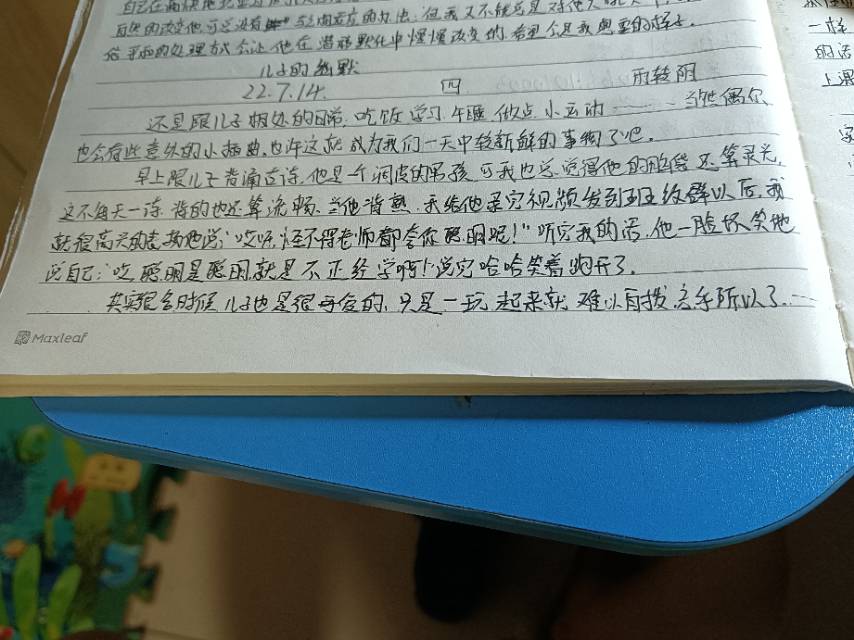 自然的改变他可能没有 对应的方法,但我又不能总是对他
给 平和的处理方式会让他在潜移默化中慢慢改变的,希望 是我 的样子。
儿子的幽默
22.7.14. 四 雨转阴
还是跟儿子相处的日常,吃饭 学习 午睡 做点 小运动……当然偶尔
也会有些意外的小插曲,也许这就成为我们一天中较新鲜的事物了吧。
早上跟儿子背诵古诗,他是一个调皮的男孩 可我也总觉得他的脑袋还算灵光,
这不每天一诗 背的也还算流畅 当他背熟 我给他录完视频发到班级群以后,我
就很高兴的表扬他说:“哎呀,怪不得老师都夸你聪明呢!”听完我的话,他一脸坏笑地
说自己:“哎 聪明是聪明,就是不正经学啊!”说完哈哈笑着跑开了。
其实很多时候 儿子也是很可爱的,只是一玩起来就难以自拔
Maxleaf
一样
的话
上课